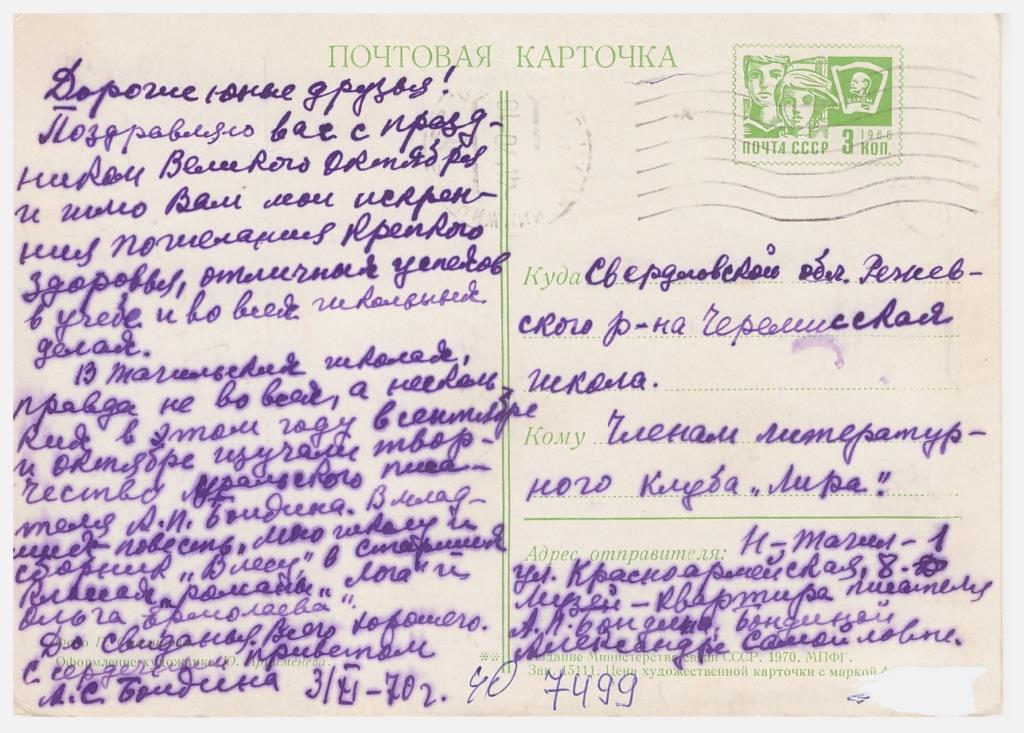 ПОЧТОВАЯ КАРТОЧКА
Дорогие юные друзья!
Поздравляю вас с празд-
ником Великого Октября
и шлю Вам мои искрен-
ния пожелания крепкого
здоровья, отличных успехов
в учебе и во всех школьных
делах.
В Тагильских школах,
правда не во всех, а несколь-
ких в этом году в сентябре
и октябре изучали твор-
чество Уральского писа-
теля А.П. Бондина. В млад-
ших повесть „Моя школа" и
сборник „В лесу" в старших
классах романы „Лога" и
„Ольга Ермолаева".
До свиданья. Всего хорошего.
С сердечным приветом
А.С. Бондина 3/XI-70 г.
Оформление художника Ю. Артименева.
ВЛКСМ
1966
ПОЧТА СССР 3 КОП.
Куда Свердловской обл. Режев-
ского р-на Черемисская
школа.
Кому Членам литератур-
ного клуба „Лира".
Адрес отправителя: Н-Тагил-1
ул. Красноармейская, 8.
Музей-квартира писателя
А.П. Бондина. Бондиной
Александре Самойловне.
** Издание Министерства связи СССР. 1970. МПФГ.
Зак. 15111. Цена художественной карточки с маркой 4
40 7499